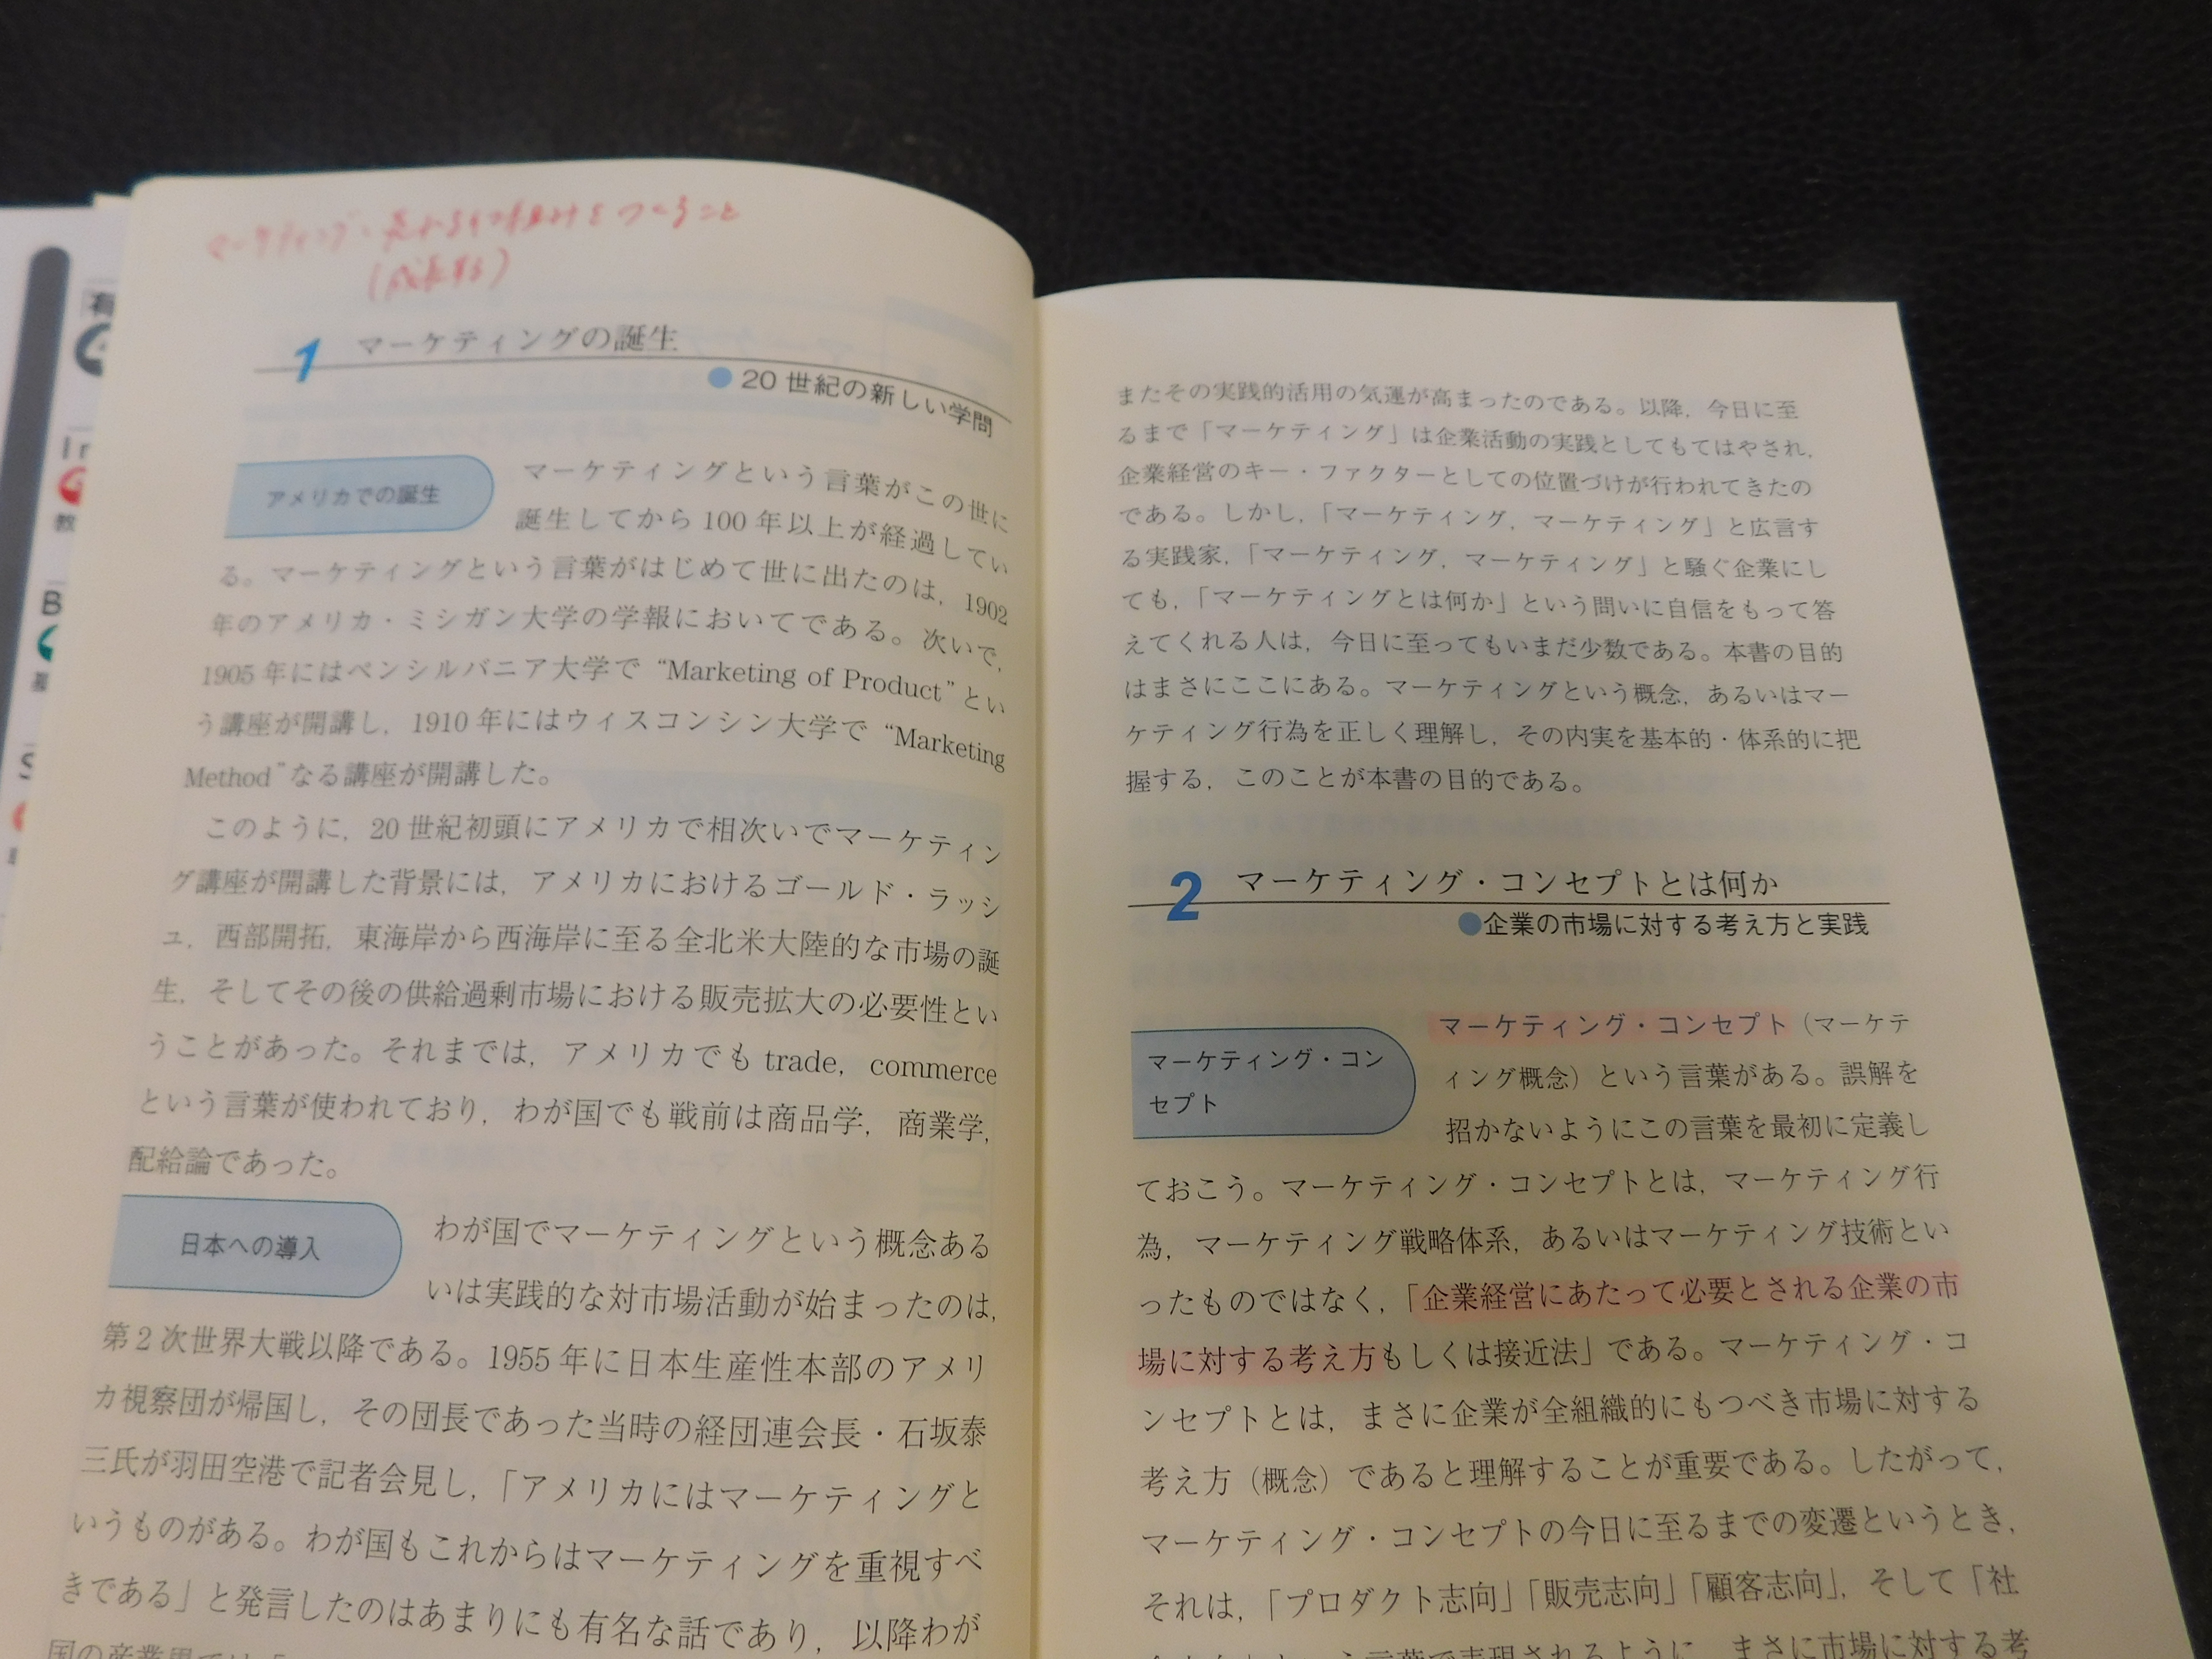 マーケティング・売れる仕組みをつくること
(成長する)
1 マーケティングの誕生
●20世紀の新しい学問
アメリカでの誕生
マーケティングという言葉がこの世に
誕生してから100年以上が経過してい
る。マーケティングという言葉がはじめて世に出たのは，1902
年のアメリカ・ミシガン大学の学報においてである。次いで，
1905年にはペンシルバニア大学で“Marketing of Product”とい
う講座が開講し，1910年にはウィスコンシン大学で“Marketing
Method”なる講座が開講した。
このように，20世紀初頭にアメリカで相次いでマーケティン
グ講座が開講した背景には，アメリカにおけるゴールド・ラッシ
ュ，西部開拓，東海岸から西海岸に至る全北米大陸的な市場の誕
生，そしてその後の供給過剰市場における販売拡大の必要性とい
うことがあった。それまでは，アメリカでもtrade，commerce
という言葉が使われており，わが国でも戦前は商品学，商業学，
配給論であった。
日本への導入
わが国でマーケティングという概念ある
いは実践的な対市場活動が始まったのは，
第2次世界大戦以降である。1955年に日本生産性本部のアメリ
カ視察団が帰国し，その団長であった当時の経団連会長・石坂泰
三氏が羽田空港で記者会見し，「アメリカにはマーケティングと
いうものがある。わが国もこれからはマーケティングを重視すべ
きである」と発言したのはあまりにも有名な話であり，以降わが
国の産業界では「
またその実践的活用の気運が高まったのである。以降，今日に至
るまで「マーケティング」は企業活動の実践としてもてはやされ，
企業経営のキー・ファクターとしての位置づけが行われてきたの
である。しかし，「マーケティング，マーケティング」と広言す
る実践家，「マーケティング，マーケティング」と騒ぐ企業にし
ても，「マーケティングとは何か」という問いに自信をもって答
えてくれる人は，今日に至ってもいまだ少数である。本書の目的
はまさにここにある。マーケティングという概念，あるいはマー
ケティング行為を正しく理解し，その内実を基本的・体系的に把
握する，このことが本書の目的である。
2 マーケティング・コンセプトとは何か
●企業の市場に対する考え方と実践
マーケティング・コン
セプト
マーケティング・コンセプト（マーケテ
ィング概念）という言葉がある。誤解を
招かないようにこの言葉を最初に定義し
ておこう。マーケティング・コンセプトとは，マーケティング行
為，マーケティング戦略体系，あるいはマーケティング技術とい
ったものではなく，「企業経営にあたって必要とされる企業の市
場に対する考え方もしくは接近法」である。マーケティング・コ
ンセプトとは，まさに企業が全組織的にもつべき市場に対する
考え方（概念）であると理解することが重要である。したがって，
マーケティング・コンセプトの今日に至るまでの変遷というとき，
それは，「プロダクト志向」「販売志向」「顧客志向」，そして「社
いう言葉で表現されるように，まさに市場に対する考